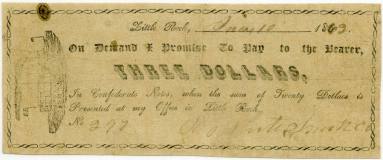 Little Rock, May 10 1863
On Demand I Promise To Pay to the Bearer,
THREE DOLLARS,
In Confederate Notes, when the sum of Twenty Dollars is
Presented at my Office in Little Rock.
No.